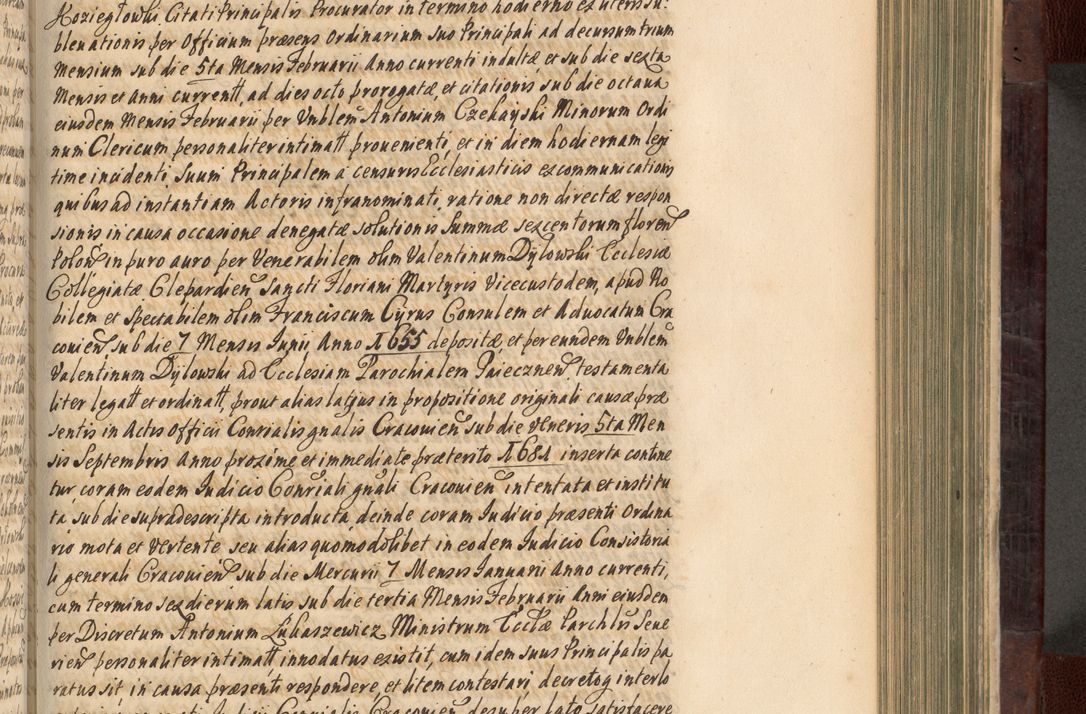 Koziegłowski, Citati Principalis Procurator in termino hodierno ex litteris su:
blevationis per Officium præsens Ordinarium suo Principali ad decursum trium
Mensium sub die 5ta Mensis Februarii Anno currenti indultæ et sub die sexta
Mensis et Anni currentt, ad dies octo prorogatæ, et citationis sub die octava
eiusdem Mensis Februarii per Vnblem Antonium Czekayski Minorum Ordi
num Clericum personaliter intimatt provenienti, et in diem hodiernam legi
time incidenti, Suum Principalem à censuris Ecclesiasticis excommunicationis
quibus ad instantiam Actoris infranominati, ratione non directæ respon
sionis in causa occasione denegatæ solutionis Summæ sexcentorum floren
Polon in puro auro per Venerabilem olim Valentinum Dylowski Ecclesiæ
Collegiatæ Clepardien Sancti Floriani Martyris Vicecustodem, apud No
bilem et Spectabilem olim Franciscum Cyrus Consulem et Advocatum Cra
covien sub die 7 Mensis Junii Anno 1655 depositæ, et per eundem Vnblem
Valentinum Dylowski ad Ecclesiam Parochialem Paiecznen testamenta
liter legatt et ordinatt, prout alias latius in propositione originali causæ præ
sentis in Actis Officii Consialis gnalis Cracovien sub die Veneris 5ta Men
sis Septembris Anno proxime et immediate præterito 1681 inserta contine
tur coram eodem Judicio Consriali gnali Cracovien intentata et institu
ta sub die supradescripta introducta, deinde coram Judicio præsenti Ordina
rio mota et Vertente seu alias quomodolibet in eodem Judicio Consistoria
li generali Cracovien sub die Mercurii 7 Mensis Januarii Anno currenti,
cum termino sex dierum latis sub die tertia Mensis Februarii Anni eiusdem
per Discretum Antonium Lukaszewicz Ministrum Ecclæ Parchlis Seve
rien personaliter intimatt innodatus existit, cum idem suus Principalis pa
ratus sit in causa præsenti respondere, et litem contestari, decretoq interlo
Judicii Consialis Cracovien desuper lato satisfacere